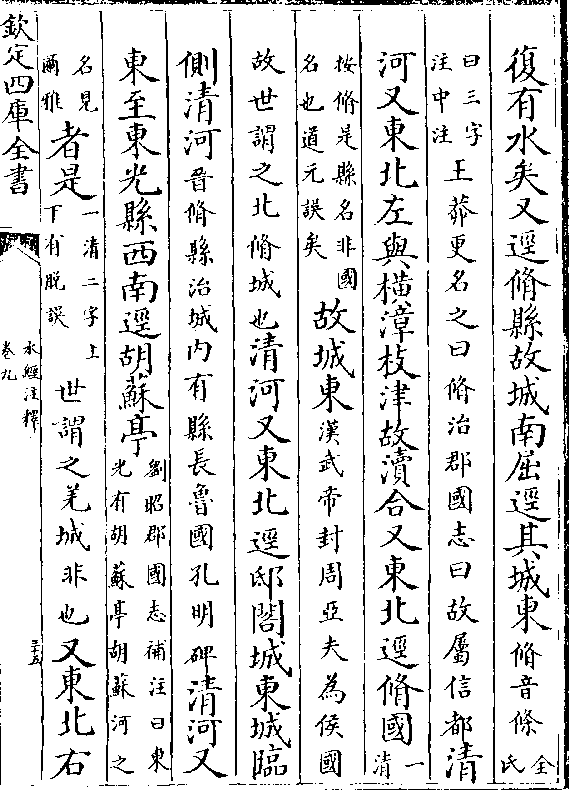 復有水矣又逕脩縣故城南屈逕其城東脩音條全氏
曰三字注中注王莽更名之曰脩治郡國志曰故屬信都清
河又東北左與橫漳枝津故瀆合又東北逕脩國一清
按脩是縣名非國名也道元誤矣故城東漢武帝封周亞夫為侯國
故世謂之北脩城也清河又東北逕邸閣城東城臨
側清河晉脩縣治城内有縣長魯國孔明碑清河又
東至東光縣西南逕胡蘇亭劉昭郡國志補注曰東光有胡蘇亭胡蘇河之
名見爾雅者是一清二字上下有脫誤世謂之羌城非也又東北右
欽定四庫全書
水經注釋
卷九
三十五